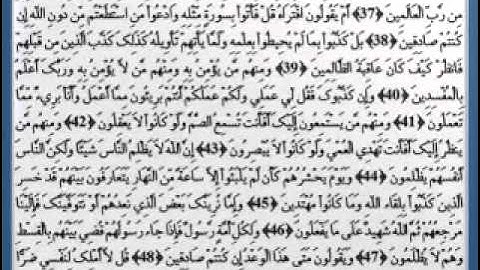 مِن رَّبِّ الْعَالَمِينَ ﴿37﴾ أَمْ يَقُولُونَ افْتَرَاهُ قُلْ فَأْتُوا بِسُورَةٍ مِّثْلِهِ وَادْعُوا مَنِ اسْتَطَعْتُم مِّن دُونِ اللَّهِ إِن
كُنتُمْ صَادِقِينَ ﴿38﴾ بَلْ كَذَّبُوا بِمَا لَمْ يُحِيطُوا بِعِلْمِهِ وَلَمَّا يَأْتِهِمْ تَأْوِيلُهُ كَذَلِكَ كَذَّبَ الَّذِينَ مِن قَبْلِهِمْ
فَانظُرْ كَيْفَ كَانَ عَاقِبَةُ الظَّالِمِينَ ﴿39﴾ وَمِنْهُم مَّن يُؤْمِنُ بِهِ وَمِنْهُم مَّن لاَّ يُؤْمِنُ بِهِ وَرَبُّكَ أَعْلَمُ
بِالْمُفْسِدِينَ ﴿40﴾ وَإِن كَذَّبُوكَ فَقُل لِّي عَمَلِي وَلَكُمْ عَمَلُكُمْ أَنتُمْ بَرِيئُونَ مِمَّا أَعْمَلُ وَأَنَاْ بَرِيءٌ مِّمَّا
تَعْمَلُونَ ﴿41﴾ وَمِنْهُم مَّن يَسْتَمِعُونَ إِلَيْكَ أَفَأَنتَ تُسْمِعُ الصُّمَّ وَلَوْ كَانُوا لاَ يَعْقِلُونَ ﴿42﴾ وَمِنهُم مَّن
يَنظُرُ إِلَيْكَ أَفَأَنتَ تَهْدِي الْعُمْيَ وَلَوْ كَانُوا لاَ يُبْصِرُونَ ﴿43﴾ إِنَّ اللَّهَ لاَ يَظْلِمُ النَّاسَ شَيْئًا وَلَكِنَّ النَّاسَ
أَنفُسَهُمْ يَظْلِمُونَ ﴿44﴾ وَيَوْمَ يَحْشُرُهُمْ كَأَن لَّمْ يَلْبَثُوا إِلاَّ سَاعَةً مِّنَ النَّهَارِ يَتَعَارَفُونَ بَيْنَهُمْ قَدْ خَسِرَ
الَّذِينَ كَذَّبُوا بِلِقَاءِ اللَّهِ وَمَا كَانُوا مُهْتَدِينَ ﴿45﴾ وَإِمَّا نُرِيَنَّكَ بَعْضَ الَّذِي نَعِدُهُمْ أَوْ نَتَوَفَّيَنَّكَ فَإِلَيْنَا
مَرْجِعُهُمْ ثُمَّ اللَّهُ شَهِيدٌ عَلَى مَا يَفْعَلُونَ ﴿46﴾ وَلِكُلِّ أُمَّةٍ رَّسُولٌ فَإِذَا جَاءَ رَسُولُهُمْ قُضِيَ بَيْنَهُم بِالْقِسْطِ
وَهُمْ لاَ يُظْلَمُونَ ﴿47﴾ وَيَقُولُونَ مَتَى هَذَا الْوَعْدُ إِن كُنتُمْ صَادِقِينَ ﴿48﴾ قُل لاَّ أَمْلِكُ لِنَفْسِي ضَرًّا